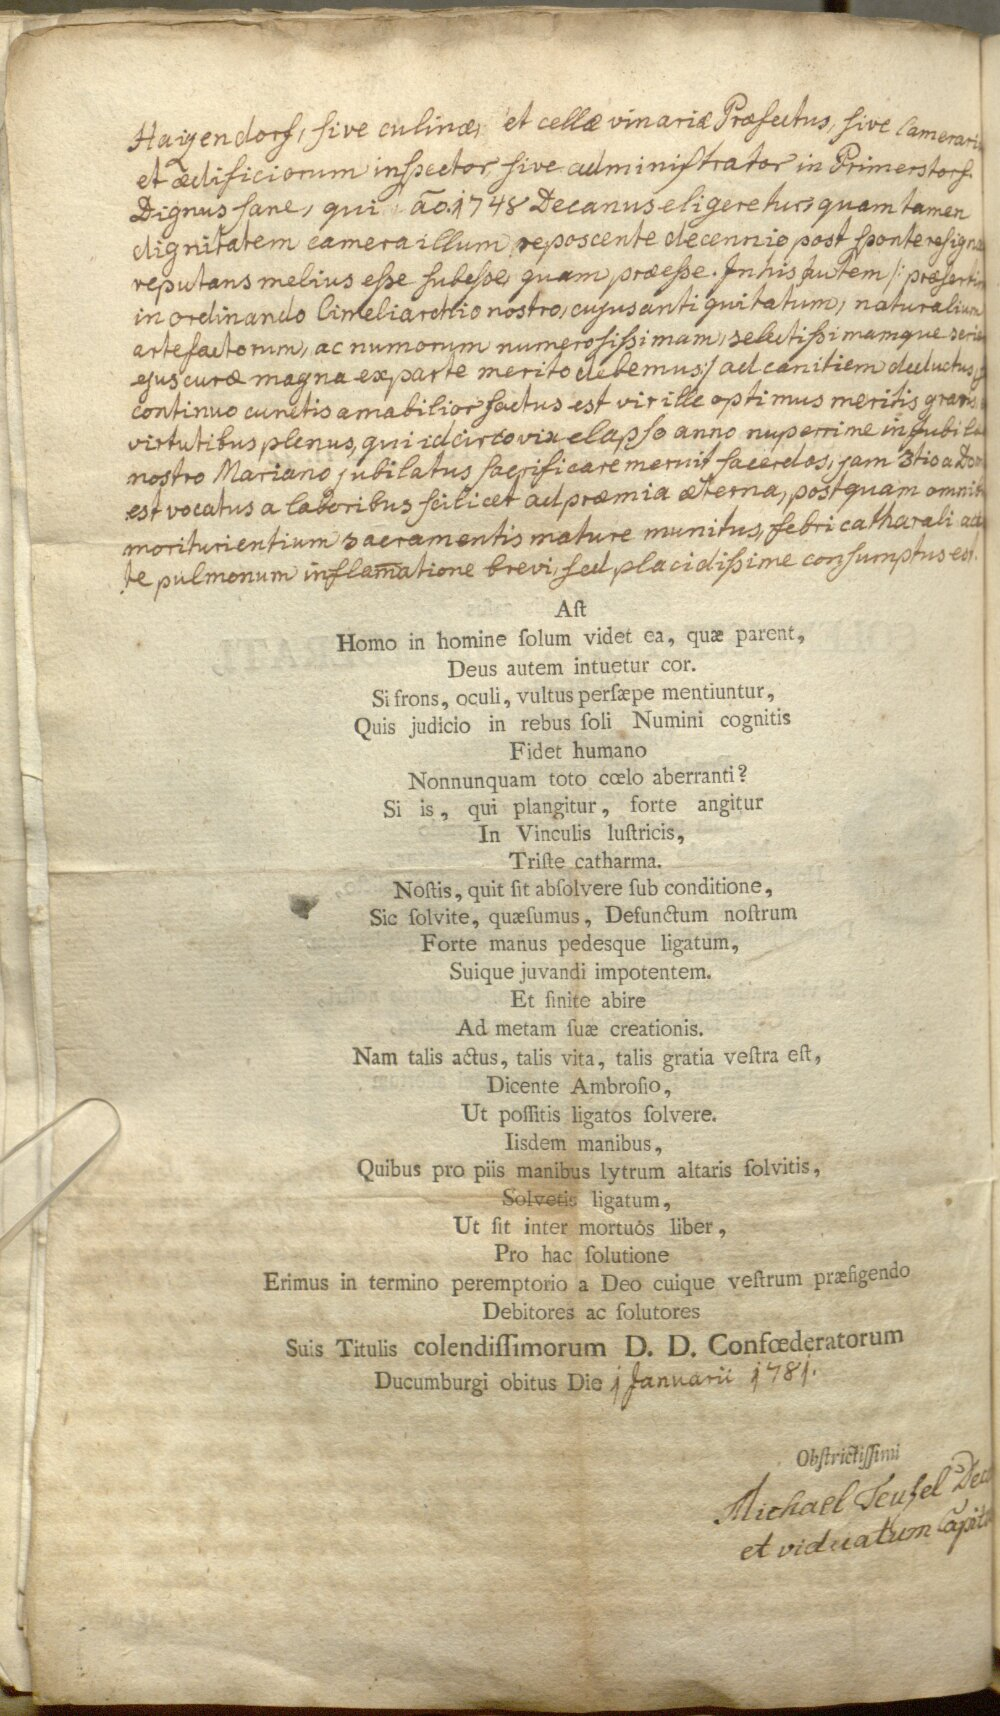 Haigendorf, sive culinæ, et cellæ vinariæ Præfectus, sive Camerari
et ædificiorum inspector sive administrator in Primerstorf.
Dignus sane, qui āo. 1748 Decanus eligeretur, quam tamen
dignitatem camera illum reposcente decennio post sponte resigna
reputans melius esse subesse, quam præesse. In his autem /: præsertim
in ordinando Cimeliarchio nostro, cujus antiquitatum, naturalium
artefactorum, ac numorum numerosissimam, selectissimamque serie
ejus curæ magna ex parte merito debemus :/ ad canitiem deductus,
continuo cunctis amabilior factus est vir ille optimus meritis gravis
virtutibus plenus, qui idcirco vix elapso anno nuperrime in Jubila
nostro Mariano jubilatus sacrificare meruit sacerdos, jam 3tio a Dom
est vocatus a laboribus scilicet ad præmia æterna, postquam omnib
moriturientium sacramentis mature munitus, febri catharali acc
te pulmonum inflam̄atione brevi, sed placidissime consumptus est.
Aſt
Homo in homine ſolum videt ea, quæ parent,
Deus autem intuetur cor.
Si frons, oculi, vultus perſæpe mentiuntur,
Quis judicio in rebus ſoli Numini cognitis
Fidet humano
Nonnunquam toto cœlo aberranti?
Si is, qui plangitur, forte angitur
In Vinculis luſtricis,
Triſte catharma.
Noſtis, quit ſit abſolvere ſub conditione,
Sic ſolvite, quæſumus, Defunctum noſtrum
Forte manus pedesque ligatum,
Suique juvandi impotentem.
Et ſinite abire
Ad metam ſuæ creationis.
Nam talis actus, talis vita, talis gratia veſtra eſt,
Dicente Ambroſio,
Ut poſſitis ligatos ſolvere.
Iisdem manibus,
Quibus pro piis manibus lytrum altaris ſolvitis,
Solvetis ligatum,
Ut ſit inter mortuos liber,
Pro hac ſolutione
Erimus in termino peremptorio a Deo cuique veſtrum præfigendo
Debitores ac ſolutores
Suis Titulis colendiſſimorum D. D. Confœderatorum
Ducumburgi obitus Die 1 Januarii 1781.
Obſtrictiſſimi
Michael Teufel Dec
et viduatum Capit